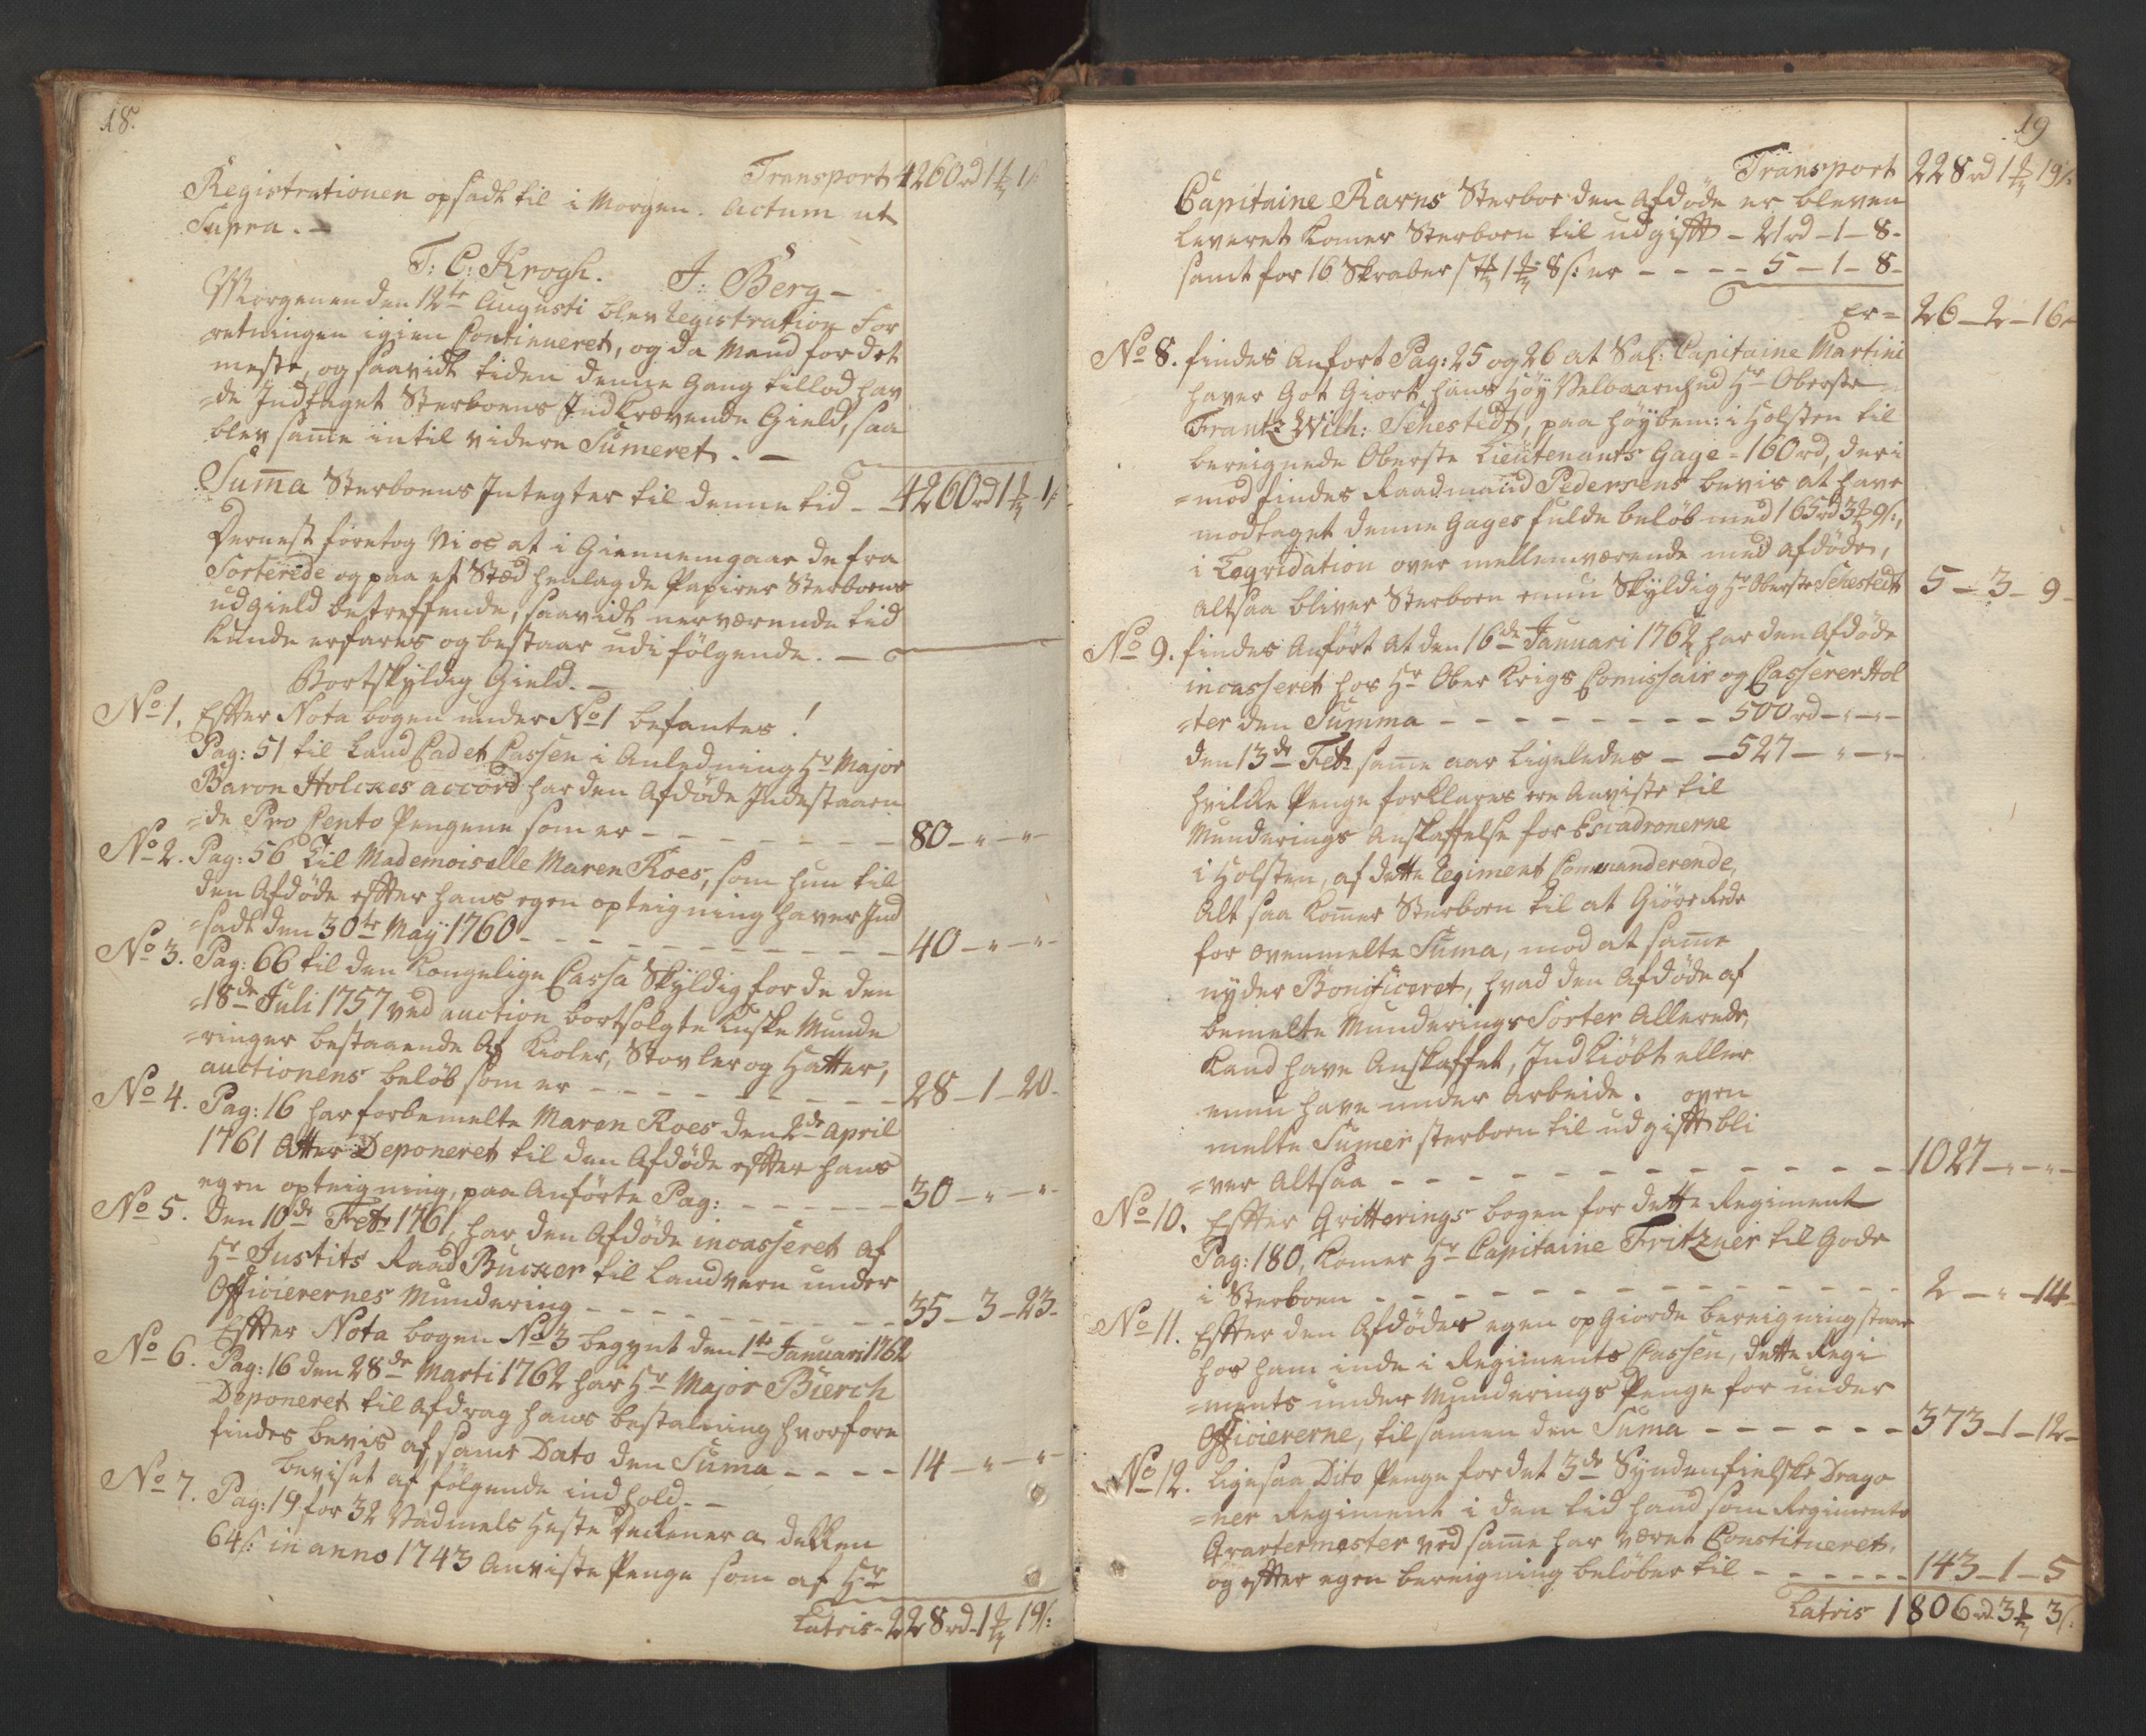 18.
Transport 4260rd 1 ƶ 1 s
Registrationen opsadt til i Morgen. Actum ut
Supra. –
T: C: Krogh. J: Berg –
Morgenen den 12te Augusti blev Registration For
retningen igien Continueret, og da Mand for det
meste, og saavidt tiden denne Gang tillod hav
=de Indtaget Sterboens Ind Krævende Gield, saa
blev samme intil videre Sumeret. –
Suma Sterboens Integter til denne tid - - 4260rd 1 ƶ 1 s
Dernest foretog Vi os at i Giennemgaae de fra
Sorterede og paa et Stæd henlagde Papirer Sterboens
udgield betreffende, saavidt nerværende tid
kunde erfares og bestaar udi følgende. –
Bortskyldig Gield. –
No 1. Effter Nota bogen under No 1 befantes!
Pag: 51 til Land Cadet Cassen i Anledning Hr Major
Baron Holckes accord har den Afdøde Indestaaen
=de Pro Cento Pengene som er - - - - - - - 80 – " – "
No 2. Pag: 56 Til Mademoiselle Maren Roes, som hun til
den Afdøde effter hans egen opteigning haver Ind
=sadt den 30te May 1760 - - - - - - - - - 40 – " – "
No 3. Pag: 66 til den Kongelige Cassa Skyldig for de den
=18de Juli 1757 ved auction bortsolgte Kuske Munde
=ringer bestaaende Af Kioler, Støvler og Hatter,
auctionens beløb som er - - - - - - - - 28 – 1 – 20.
No 4. Pag: 16 har forbemelte Maren Roes den 2de April
1761 Atter Deponeret til den Afdøde effter hans
egen opteigning, paa Anførte Pag: - - - - - - 30 – " – "
No 5. Den 10de Febr 1761, har den Afdøde incasseret af
Hr Justits Raad Bucker til Landvern under
Officierernes Mundering - - - - - - - - - 35 – 3 – 23.
Effter Nota bogen No 3 begynt den 1te Januari 1762
No 6. Pag: 16 den 28de Marti 1762 har Hr Major Bierch
Deponeret til Afdrag hans bestalning hvorfore
findes bevis af samme Dato den Suma - - - - 14 – " – "
beviset af følgende indhold. –
No 7. Pag: 19 for 32 Vadmels Heste Deckener a decken
64 s: in anno 1743 Anviste Penge som af Hr
Latris - 228rd - 1 ƶ 19 s:
19
Transport 228rd 1 ƶ 19 s:
Capitaine Rarns Sterboe den Afdøde er bleven
leveret komer Sterboen til udgifft - 21rd – 1 – 8 -
samt for 16 Skraber s tk 1 ƶ 8 s: er - - - - 5 – 1 – 8 -
er = 26 – 2 – 16
No 8. findes Anført Pag: 25 og 26 at Sal: Capitaine Martini
haver Got Giort hans Høy Velbaarnhed Hr Oberste
Frantz Wilh: Sehestedt, paa høybem: i Holsten til
bereignede Oberste Lieutenants Gage - 160rd, deri
=mod findes Raadmand Pedersens bevis at have
modtaget denne Gages fulde beløb med 165rd 3 ƶ 9 s,
i Legvidation over mellemværende med afdøde,
Altsaa bliver Sterboen endnu Skyldig Hr Oberste Sehestedt 5 – 3 – 9 -
No 9. findes Anført At den 16de Januari 1762 har den Afdøde
incasseret hos Hr Ober Krigs Comissair og Casserer Hol
=ter den Summa - - - - - - - - - 500rd – " – "
den 13de Febr samme aar ligeledes - - 527 – " – "
hvilke Penge forklares ere Anviste til
Munderings Anskaffelse for Escadronerne
i Holsten, af dette Regiment Commanderende,
Alt saa komer Sterboen til at Giøre Rede
for ovenmelte Suma, mod at samme
nyder Bonificeret, hvad den Afdøde af
bemelte Munderings Sorter Allerede,
kand have Anskaffet, Ind kiøbt eller
endnu have under Arbeide. oven
melte Sumer sterboen til udgifft bli
=ver Altsaa - - - - - - - - - - - 1027 – " – " –
No 10. Effter Qvitterings bogen for dette Regiment
Pag: 180, komer Hr Capitaine Fritzner til Gode
i Sterboen - - - - - - - - - - - - 2 – " – 14 -
No 11. Effter den Afdødes egen op Giorde bereigning staar
hos ham inde i Regiments Cassen, dette Regi
=ments under Munderings Penge for under
Officiererne, tilsamen den Suma - - - - - - 373 – 1 – 12 -
No 12. ligesaa Dito Penge for det 3de Syndenfielske Drago
=ner Regiment i den tid hand som Regiments
Qvartermester ved samme har været Constitueret,
og effter egen bereigning beløber til - - - - - - 143 – 1 – 5
Latris 1806rd 3 ƶ 3 s: